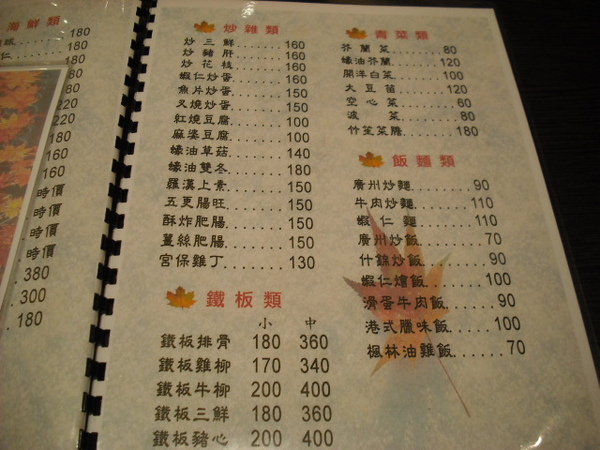 海鮮類
180
仁 180
80
80
220
220
180
160
160
時價
時價
時價
時價
380
300
180
炒雜類
炒三鮮.......160
炒豬肝.......160
炒花枝.......160
蝦仁炒蛋......160
魚片炒蛋......150
叉燒炒蛋......150
紅燒豆腐......100
麻婆豆腐......100
蠔油草菇......140
蠔油雙冬......180
羅漢上素......150
五更腸旺......150
酥炸肥腸......150
薑絲肥腸......150
宮保雞丁......130
鐵板類
小 中
鐵板排骨 180 360
鐵板雞柳 170 340
鐵板牛柳 200 400
鐵板三鮮 180 360
鐵板豬心 200 400
青菜類
芥蘭菜.......80
蠔油芥蘭......120
開洋白菜......100
大豆苗.......120
空心菜.......60
波菜........80
竹笙菜膽......180
飯麵類
廣州炒麵.......90
牛肉炒麵.......110
蝦仁麵........110
廣州炒飯.......70
什錦炒飯.......90
蝦仁燴飯.......100
滑蛋牛肉飯......90
港式臘味飯.....100
楓林油雞飯......70